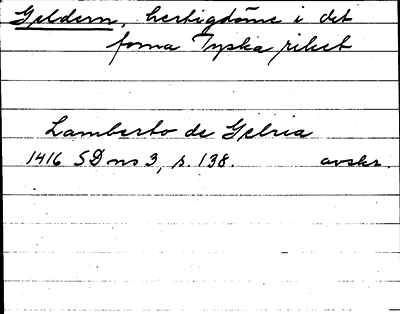 Geldern, hertigdöme i det
forna Tyska riket
Lamberto de Gelria
1416 SD ns 3, s. 138. avskr.